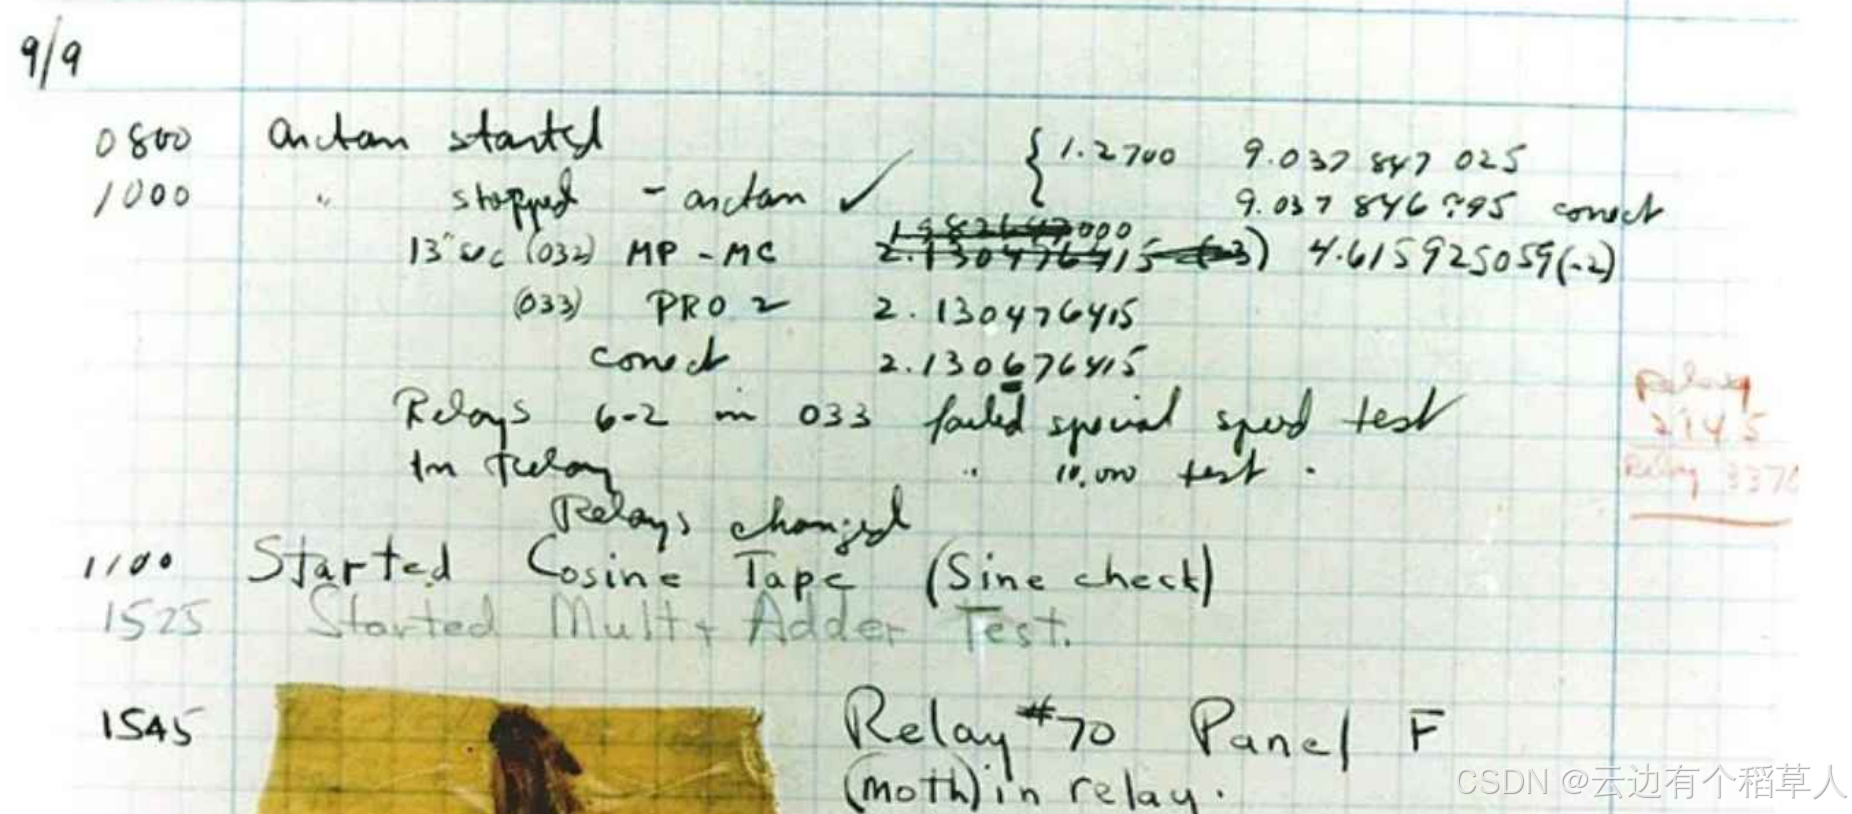 9/9
0800 arctan started { 1.2700 9.037 847 025
1000 " stopped - arctan ✓ 9.037 846 995 correct
1.982647000
13"sec (032) MP - MC 2.130476415 (-3) 4.615925059(-2)
(033) PRO 2 2.130476415
correct 2.130676415
Relays 6-2 in 033 failed special speed test
In Relay " 10,000 test .
Relay
2145
Relay 3370
Relays changed
1100 Started Cosine Tape (Sine check)
1525 Started Mult + Adder Test.
1545 Relay #70 Panel F
(moth) in relay.
CSDN @云边有个稻草人